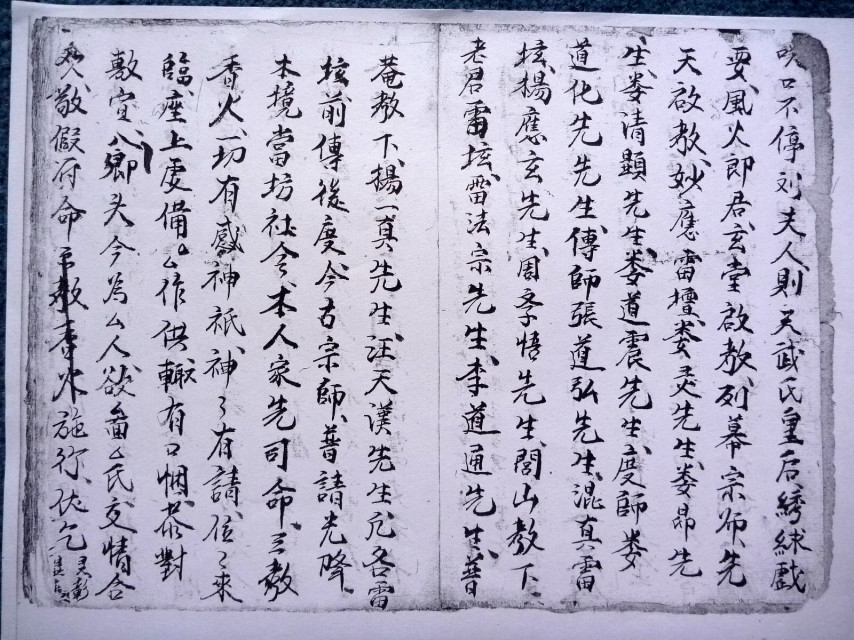 吹口不停刘夫人則天武氏皇后綉絲戲
耍風火郎君玄堂啟教列幕宗师先
天啟教妙應雷壇娄灵先生娄昂先
生娄清顕先生娄道震先生度師娄
道化先先生傳師張道弘先生混真雷
垓揚應玄先生周孝悟先生閭山教下
老君雷垓雷法宗先生李道通先生普
菴教下揚一真先生汪天漢先生凢各雷
垓前傳後度今古宗師普請光降
本境當坊社令本人家先司命三教
香火一切有感神祇神〻有請位〻來
臨座上虔備厶作供輙有口悃恭對
敷宣八卿头今為厶人欲啚厶氏交情合
敬假府命示教香火施行伏乞